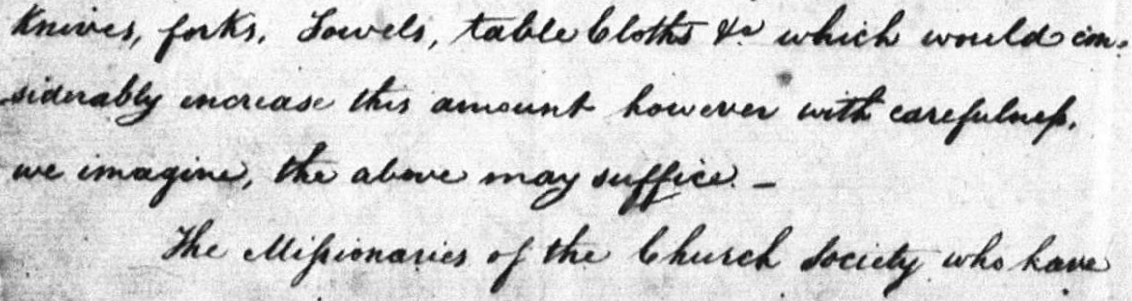 Knives, forks, Towels, table Cloths &c which would con-
siderably increase this amount however with carefulneſs,
we imagine, the above may suffice. –
The Miſsionaries of the Church Society who have